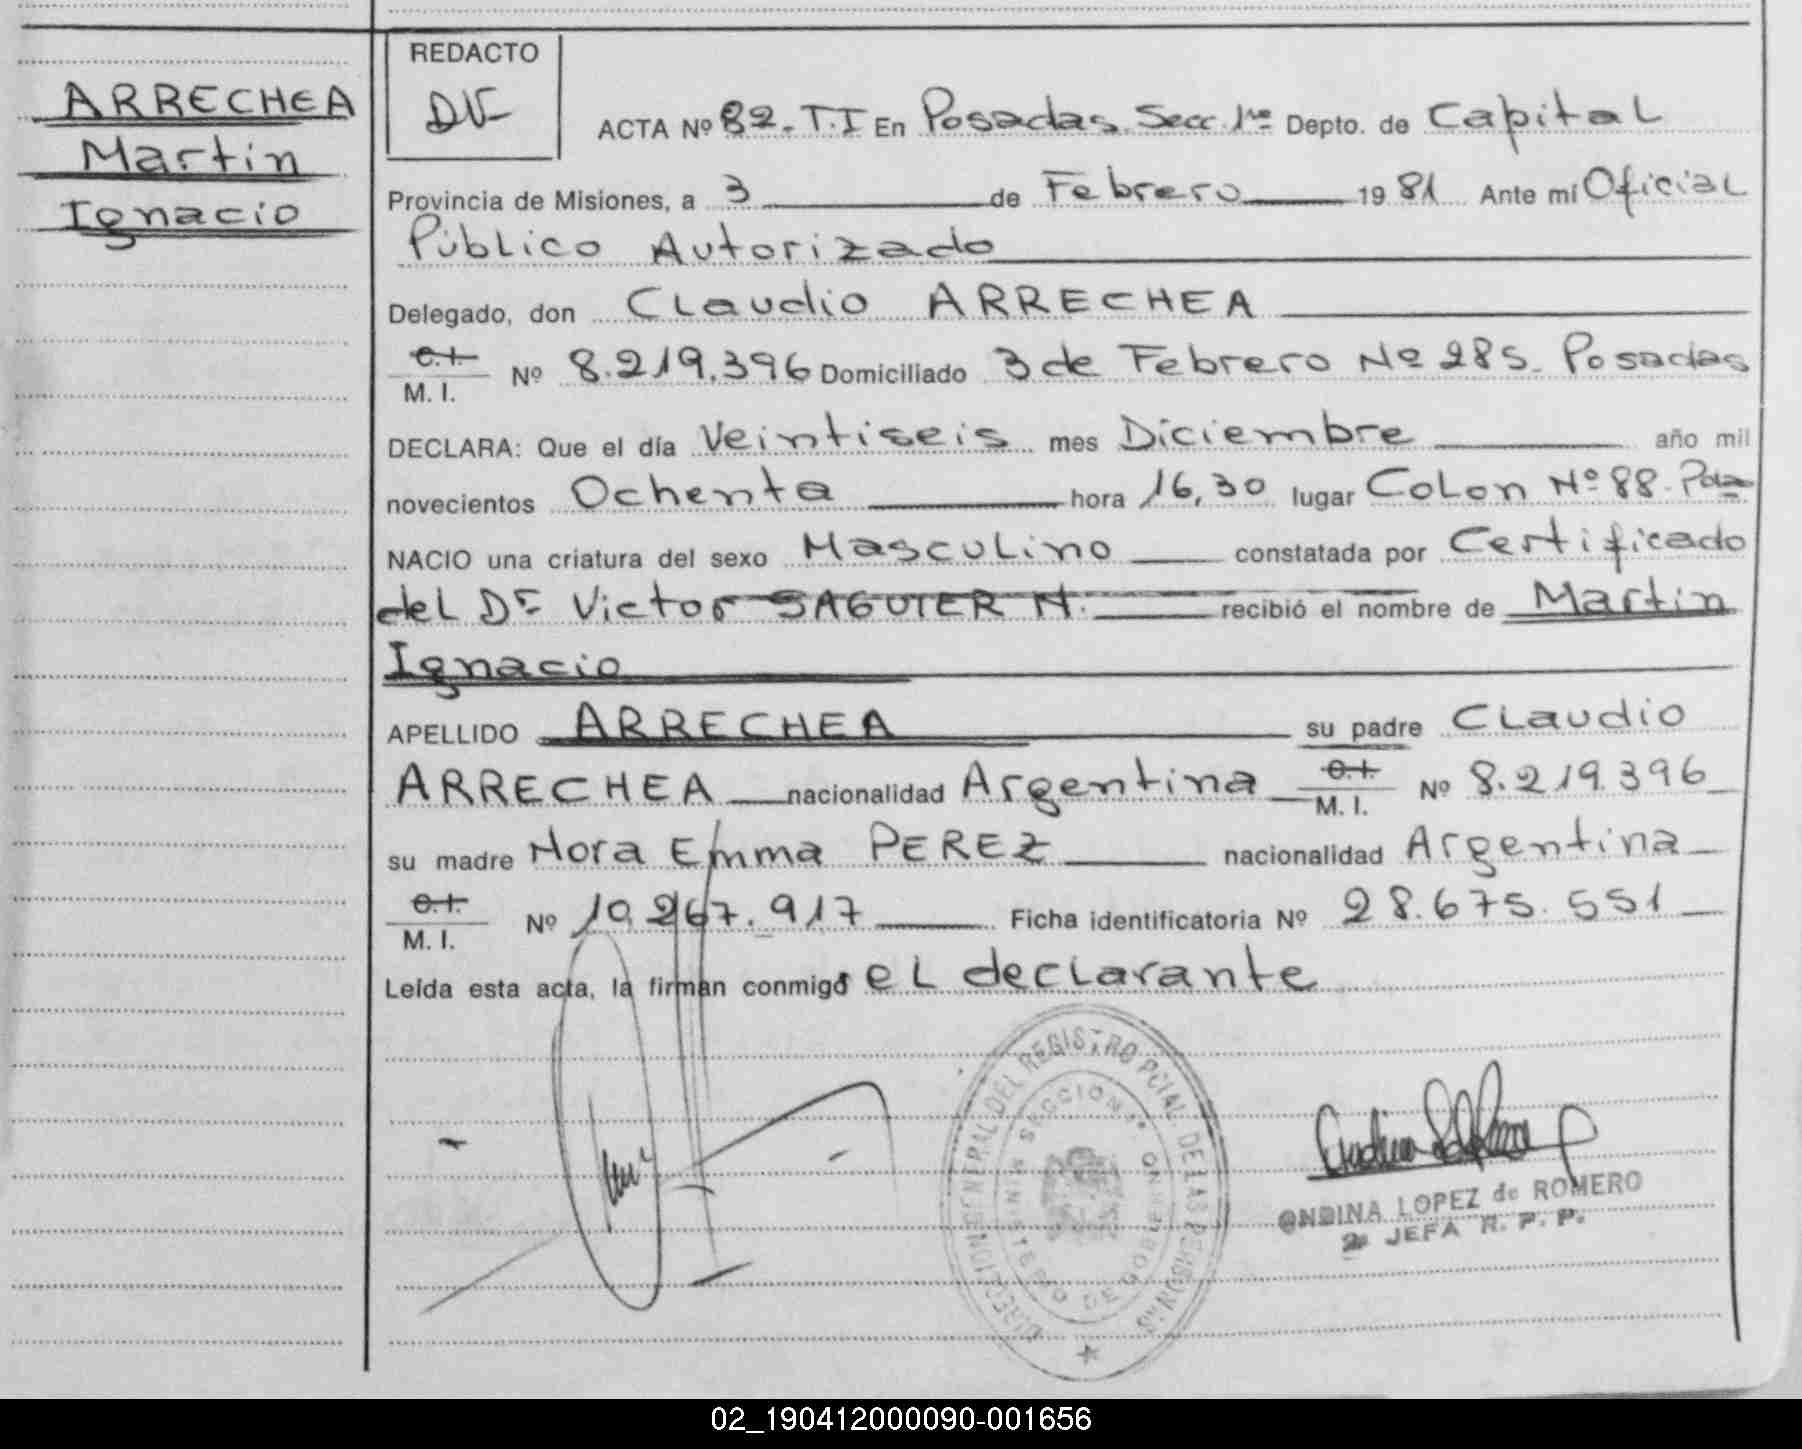 ARRECHEA
Martin
Ignacio
REDACTO
ACTA Nº 82. T.I En Posadas. Secc. 1ra Depto. de Capital
Provincia de Misiones, a 3 de Febrero 1981 Ante mí Oficial
Público Autorizado
Delegado, don Claudio ARRECHEA
C.I. M. I. Nº 8.219.396 Domiciliado 3 de Febrero Nº 285. Posadas
DECLARA: Que el día Veintiseis mes Diciembre año mil
novecientos Ochenta hora 16,30 lugar Colon Nº 88. Pdas
NACIO una criatura del sexo Masculino constatada por Certificado
del Dr. Victor SAGUIER N. recibió el nombre de Martin
Ignacio
APELLIDO ARRECHEA su padre Claudio
ARRECHEA nacionalidad Argentina C.I. M. I. Nº 8.219.396
su madre Nora Emma PEREZ nacionalidad Argentina
C.I. M. I. Nº 10.267.917 Ficha identificatoria Nº 28.675.551
Leída esta acta, la firman conmigo el declarante
DIRECCION GENERAL DEL REGISTRO PCIAL. DE LAS PERSONAS
SECCION 1ª
MINISTERIO DE GOBIERNO
ONDINA LOPEZ de ROMERO
2ª JEFA R. P. P.
02_190412000090-001656